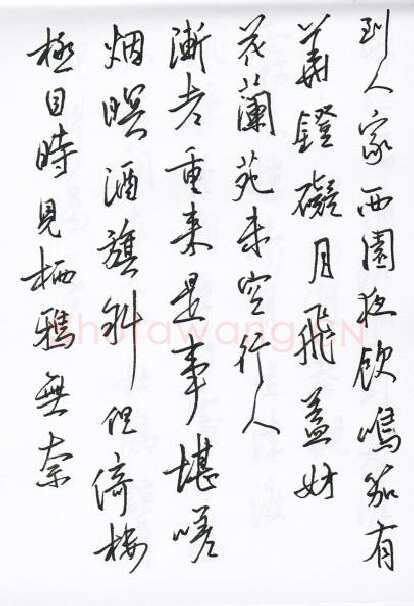 到人家西園夜飲鳴笳有
華鐙礙月飛蓋妨
花蘭苑未空行人
漸老重来是事堪嗟
烟暝酒旗斜但倚樓
極目時見栖鴉無奈